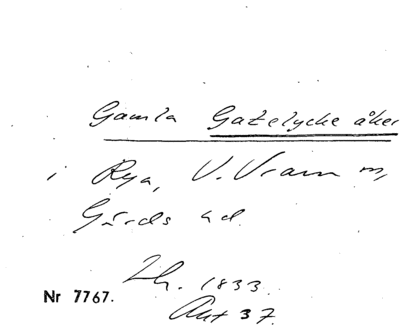 Gamla Gatelycke åker
i Rya, V. Vram m,
Gärds hd
Lh. 1833.
Akt 37.
Nr 7767.